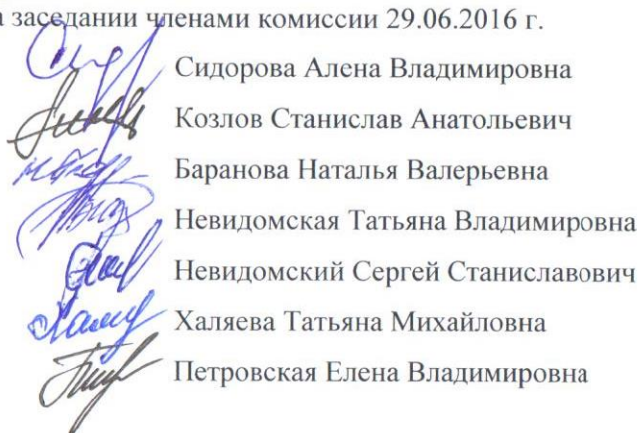 а заседании членами комиссии 29.06.2016 г.
Сидорова Алена Владимировна
Козлов Станислав Анатольевич
Баранова Наталья Валерьевна
Невидомская Татьяна Владимировна
Невидомский Сергей Станиславович
Халяева Татьяна Михайловна
Петровская Елена Владимировна